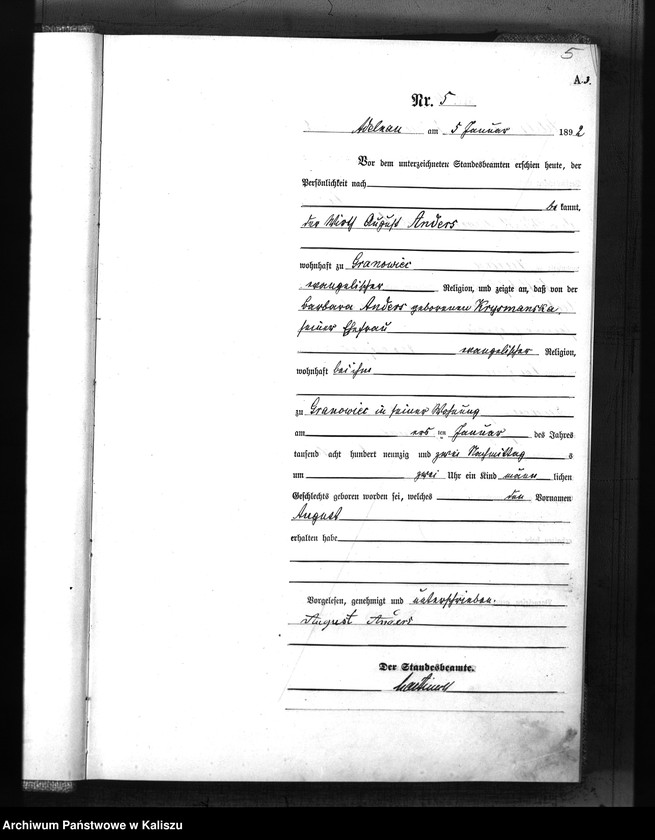 5
A. 1.
Nr. 5
Adelnau am 5 Januar 1892
Vor dem unterzeichneten Standesbeamten erschien heute, der
Persönlichkeit nach
be kannt,
der Wirth August Anders
wohnhaft zu Granowiec
evangelischer Religion, und zeigte an, daß von der
Barbara Anders geborenen Krysmanska
seiner Ehefrau
evangelischer Religion,
wohnhaft bei ihm
zu Granowiec in seiner Wohnung
am ersten Januar des Jahres
tausend acht hundert neunzig und zwei Nachmittags
um zwei Uhr ein Kind männlichen
Geschlechts geboren worden sei, welches den Vornamen
August
erhalten habe
Vorgelesen, genehmigt und unterschrieben.
August Anders
Der Standesbeamte.
Archiwum Państwowe w Kaliszu